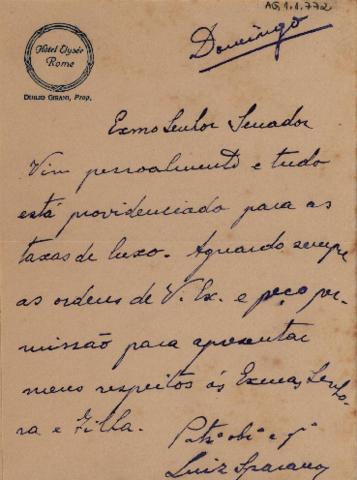 AG.1.1.772
Hotel Elysée
Rome
DUILIO GIRANI, Prop.
Domingo
Exmo Senhor Senador
Vim pessoalmente e tudo
está providenciado para as
taxas de luxo. Aguardo sempre
as ordens de V. Ex. e peço per-
missão para apresentar
meus respeitos ás Exmas Senho-
ra e Filha.
obr. e
Luiz Sparano